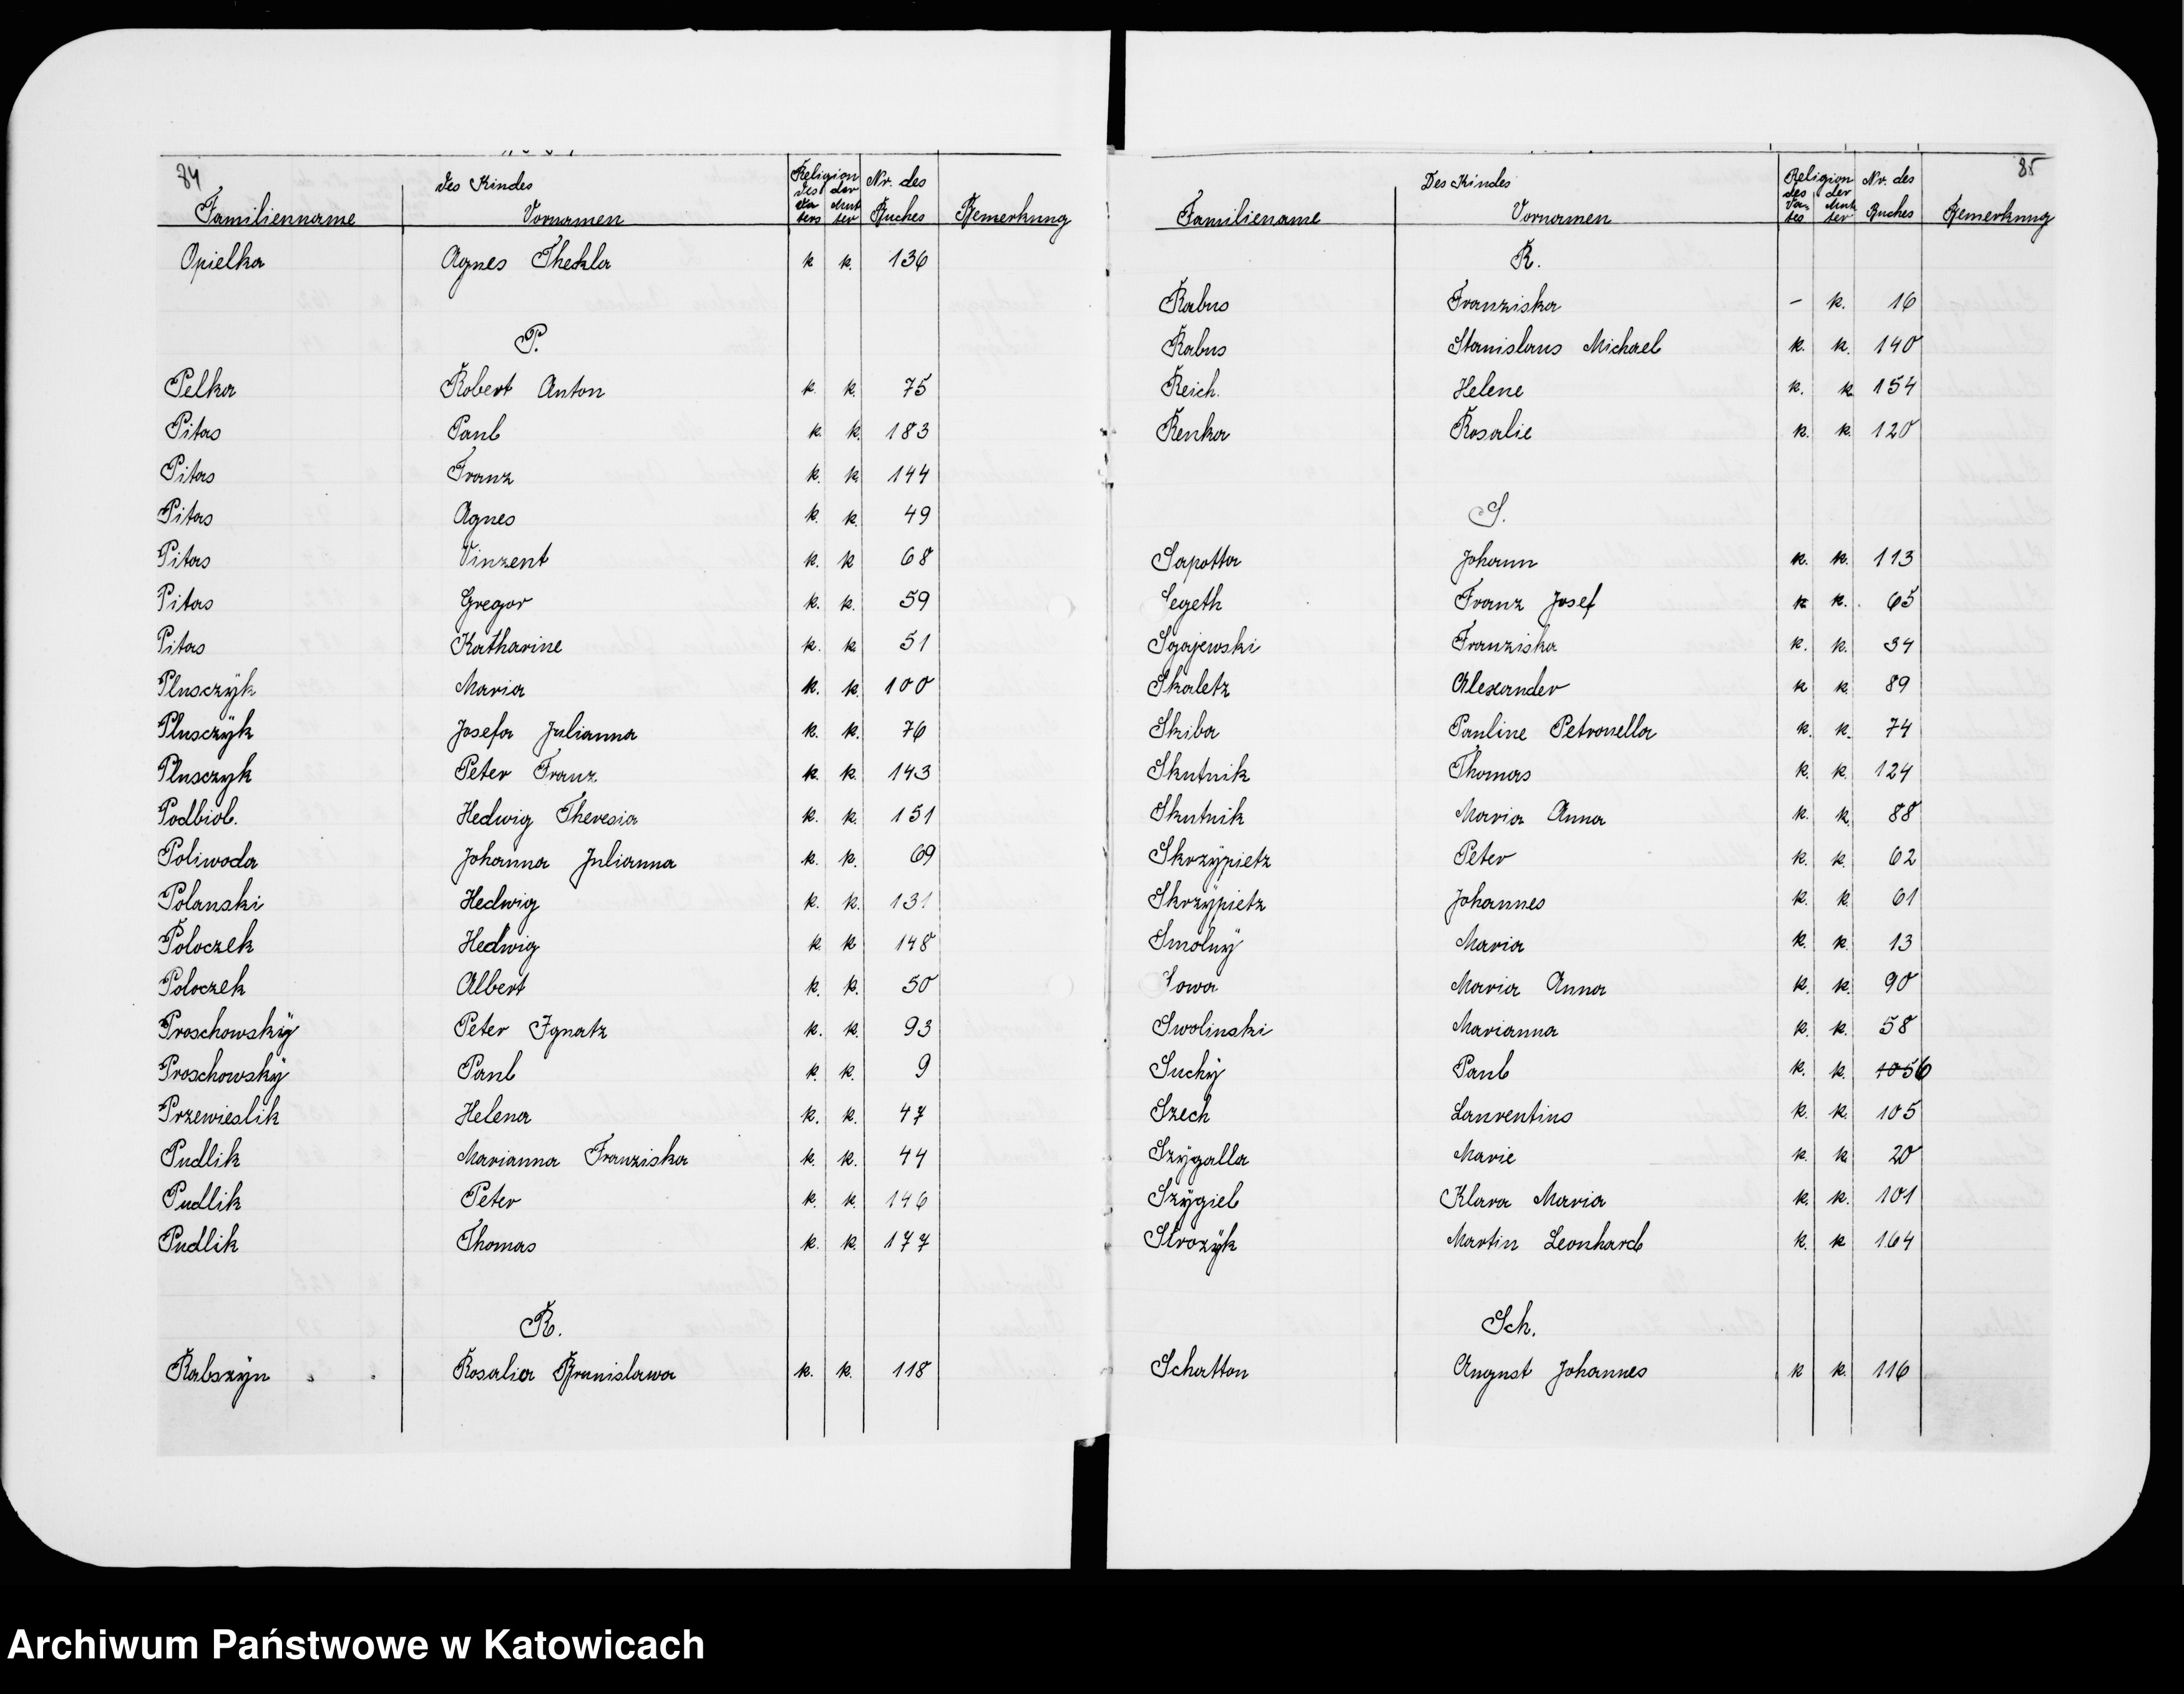 84
Des Kindes
Religion des Vaters der Mutter Nr. des Buches
Familienname Vornamen Bemerkung
Opielka Agnes Thekla k k. 136
P.
Pelka Robert Anton k. k. 75
Pitas Paul k. k. 183
Pitas Franz k. k. 144
Pitas Agnes k. k. 49
Pitas Vinzent k. k 68
Pitas Gregor k. k. 59
Pitas Katharine k. k 51
Plusczÿk Maria k. k. 100
Plusczÿk Josefa Julianna k. k. 76
Plusczyk Peter Franz k. k. 143
Podbiol. Hedwig Theresia k. k. 151
Poliwoda Johanna Julianna k. k. 69
Polanski Hedwig k. k. 131
Poloczek Hedwig k k 148
Poloczek Albert k. k. 50
Proschowskÿ Peter Ignatz k. k. 93
Proschowskÿ Paul k. k. 9
Przewieslik Helena k. k. 47
Pudlik Marianna Franziska k. k. 44
Pudlik Peter k. k. 146
Pudlik Thomas k. k. 177
R.
Rabszÿn Rosalia Bronislawa k. k. 118
85
Des Kindes
Religion des Vaters der Mutter Nr. des Buches
Familiename Vornamen Bemerkung
R.
Rabus Franziska – k. 16
Rabus Stanislaus Michael k. k. 140
Reich. Helene k. k 154
Renka Rosalie k. k. 120
S.
Sapotta Johann k. k. 113
Segeth Franz Josef k k. 65
Sgajewski Franziska k. k. 34
Skaletz Alexander k k. 89
Skiba Pauline Petronella k. k. 74
Skutnik Thomas k. k. 124
Skutnik Maria Anna k. k. 88
Skrzÿpietz Peter k. k. 62
Skrzÿpietz Johannes k. k. 61
Smolnÿ Maria k. k. 13
Sowa Maria Anna k. k. 90
Swolinski Marianna k. k. 58
Suchÿ Paul k. k. 105 6
Szech Laurentius k. k. 105
Szÿgalla Marie k. k 20
Szÿgiel Klara Maria k. k. 101
Strozÿk Martin Leonhard k. k 164
Sch.
Schatton August Johannes k k. 116
Archiwum Państwowe w Katowicach